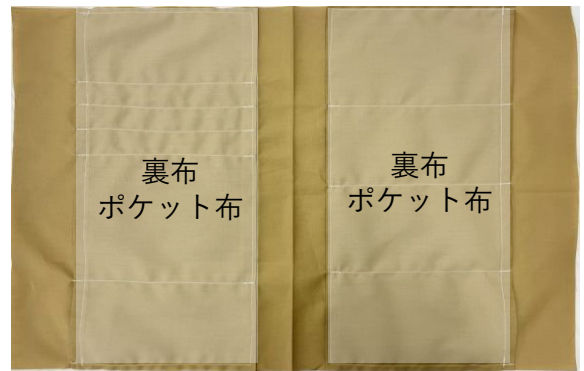 裏布
ポケット布
裏布
ポケット布